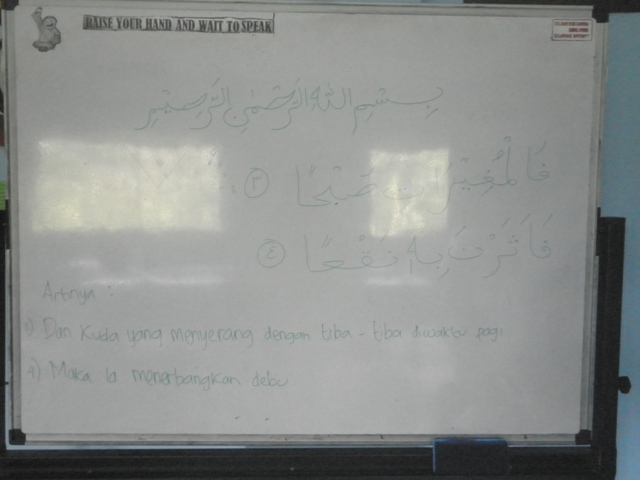 RAISE YOUR HAND AND WAIT TO SPEAK
بِسْمِ اللهِ الرَّحْمٰنِ الرَّحِيْمِ
فَالْمُغِيْرَاتِ صَبْحًا ٣
فَاَثَرْنَ بِهٖ نَقْعًا ٤
Artinya :
3) Dan Kuda yang menyerang dengan tiba - tiba diwaktu pagi
4) Maka Ia menerbangkan debu